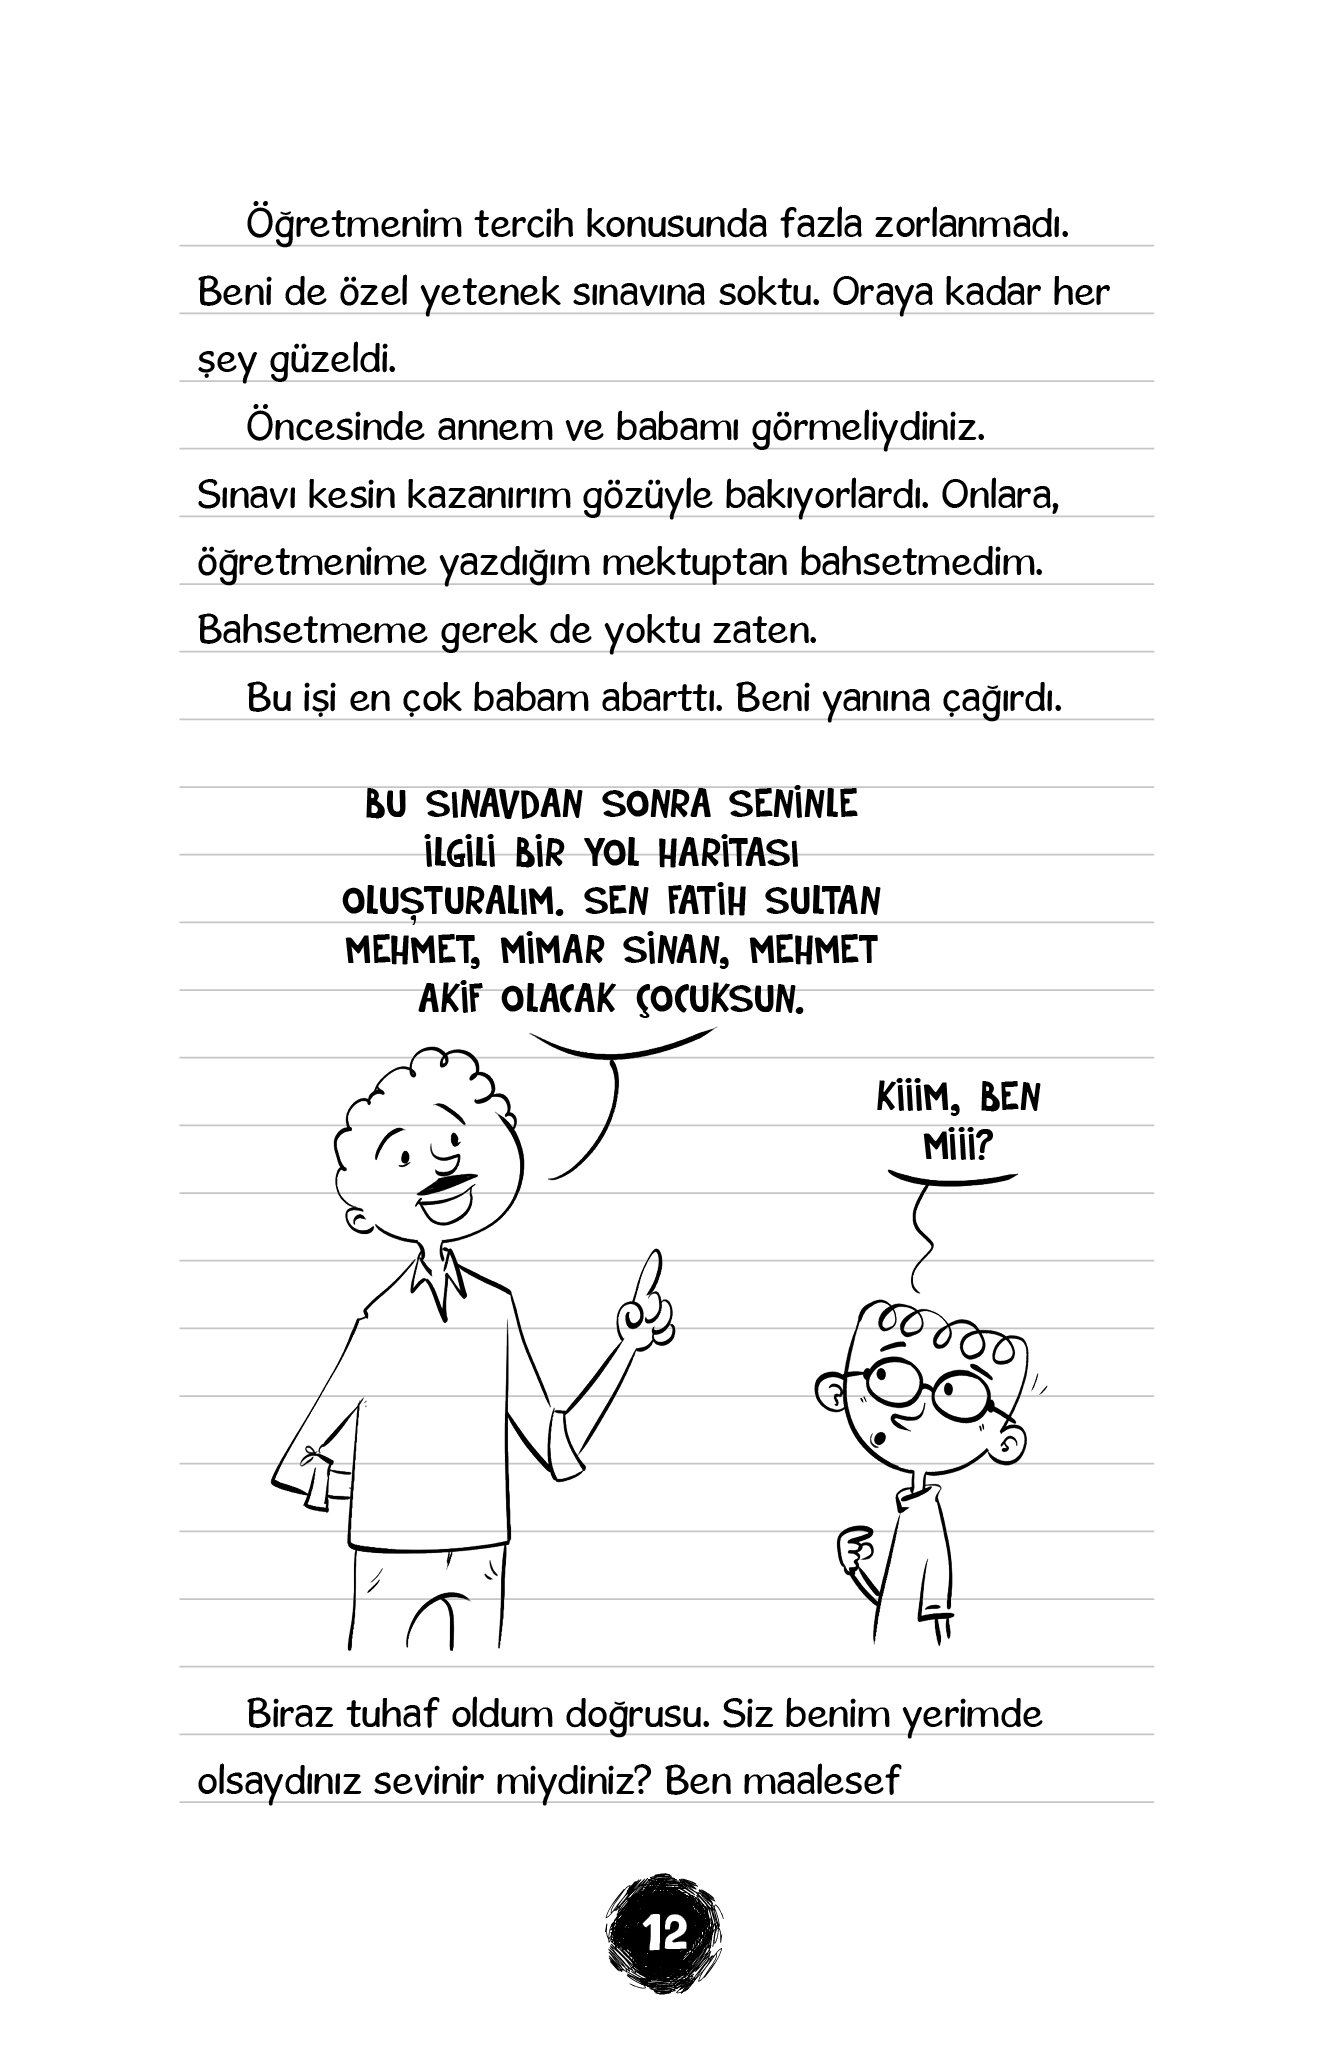 Öğretmenim tercih konusunda fazla zorlanmadı.
Beni de özel yetenek sınavına soktu. Oraya kadar her
şey güzeldi.
Öncesinde annem ve babamı görmeliydiniz.
Sınavı kesin kazanırım gözüyle bakıyorlardı. Onlara,
öğretmenime yazdığım mektuptan bahsetmedim.
Bahsetmeme gerek de yoktu zaten.
Bu işi en çok babam abarttı. Beni yanına çağırdı.
BU SINAVDAN SONRA SENİNLE
İLGİLİ BİR YOL HARİTASI
OLUŞTURALIM. SEN FATİH SULTAN
MEHMET, MİMAR SİNAN, MEHMET
AKİF OLACAK ÇOCUKSUN.
KİİİM, BEN
Mİİİ?
Biraz tuhaf oldum doğrusu. Siz benim yerimde
olsaydınız sevinir miydiniz? Ben maalesef
12